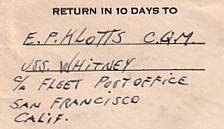 RETURN IN 10 DAYS TO
E.P. KLOTTS C.Q.M.
USS. WHITNEY
C/o FLEET POST OFFICE
SAN FRANCISCO
CALIF.